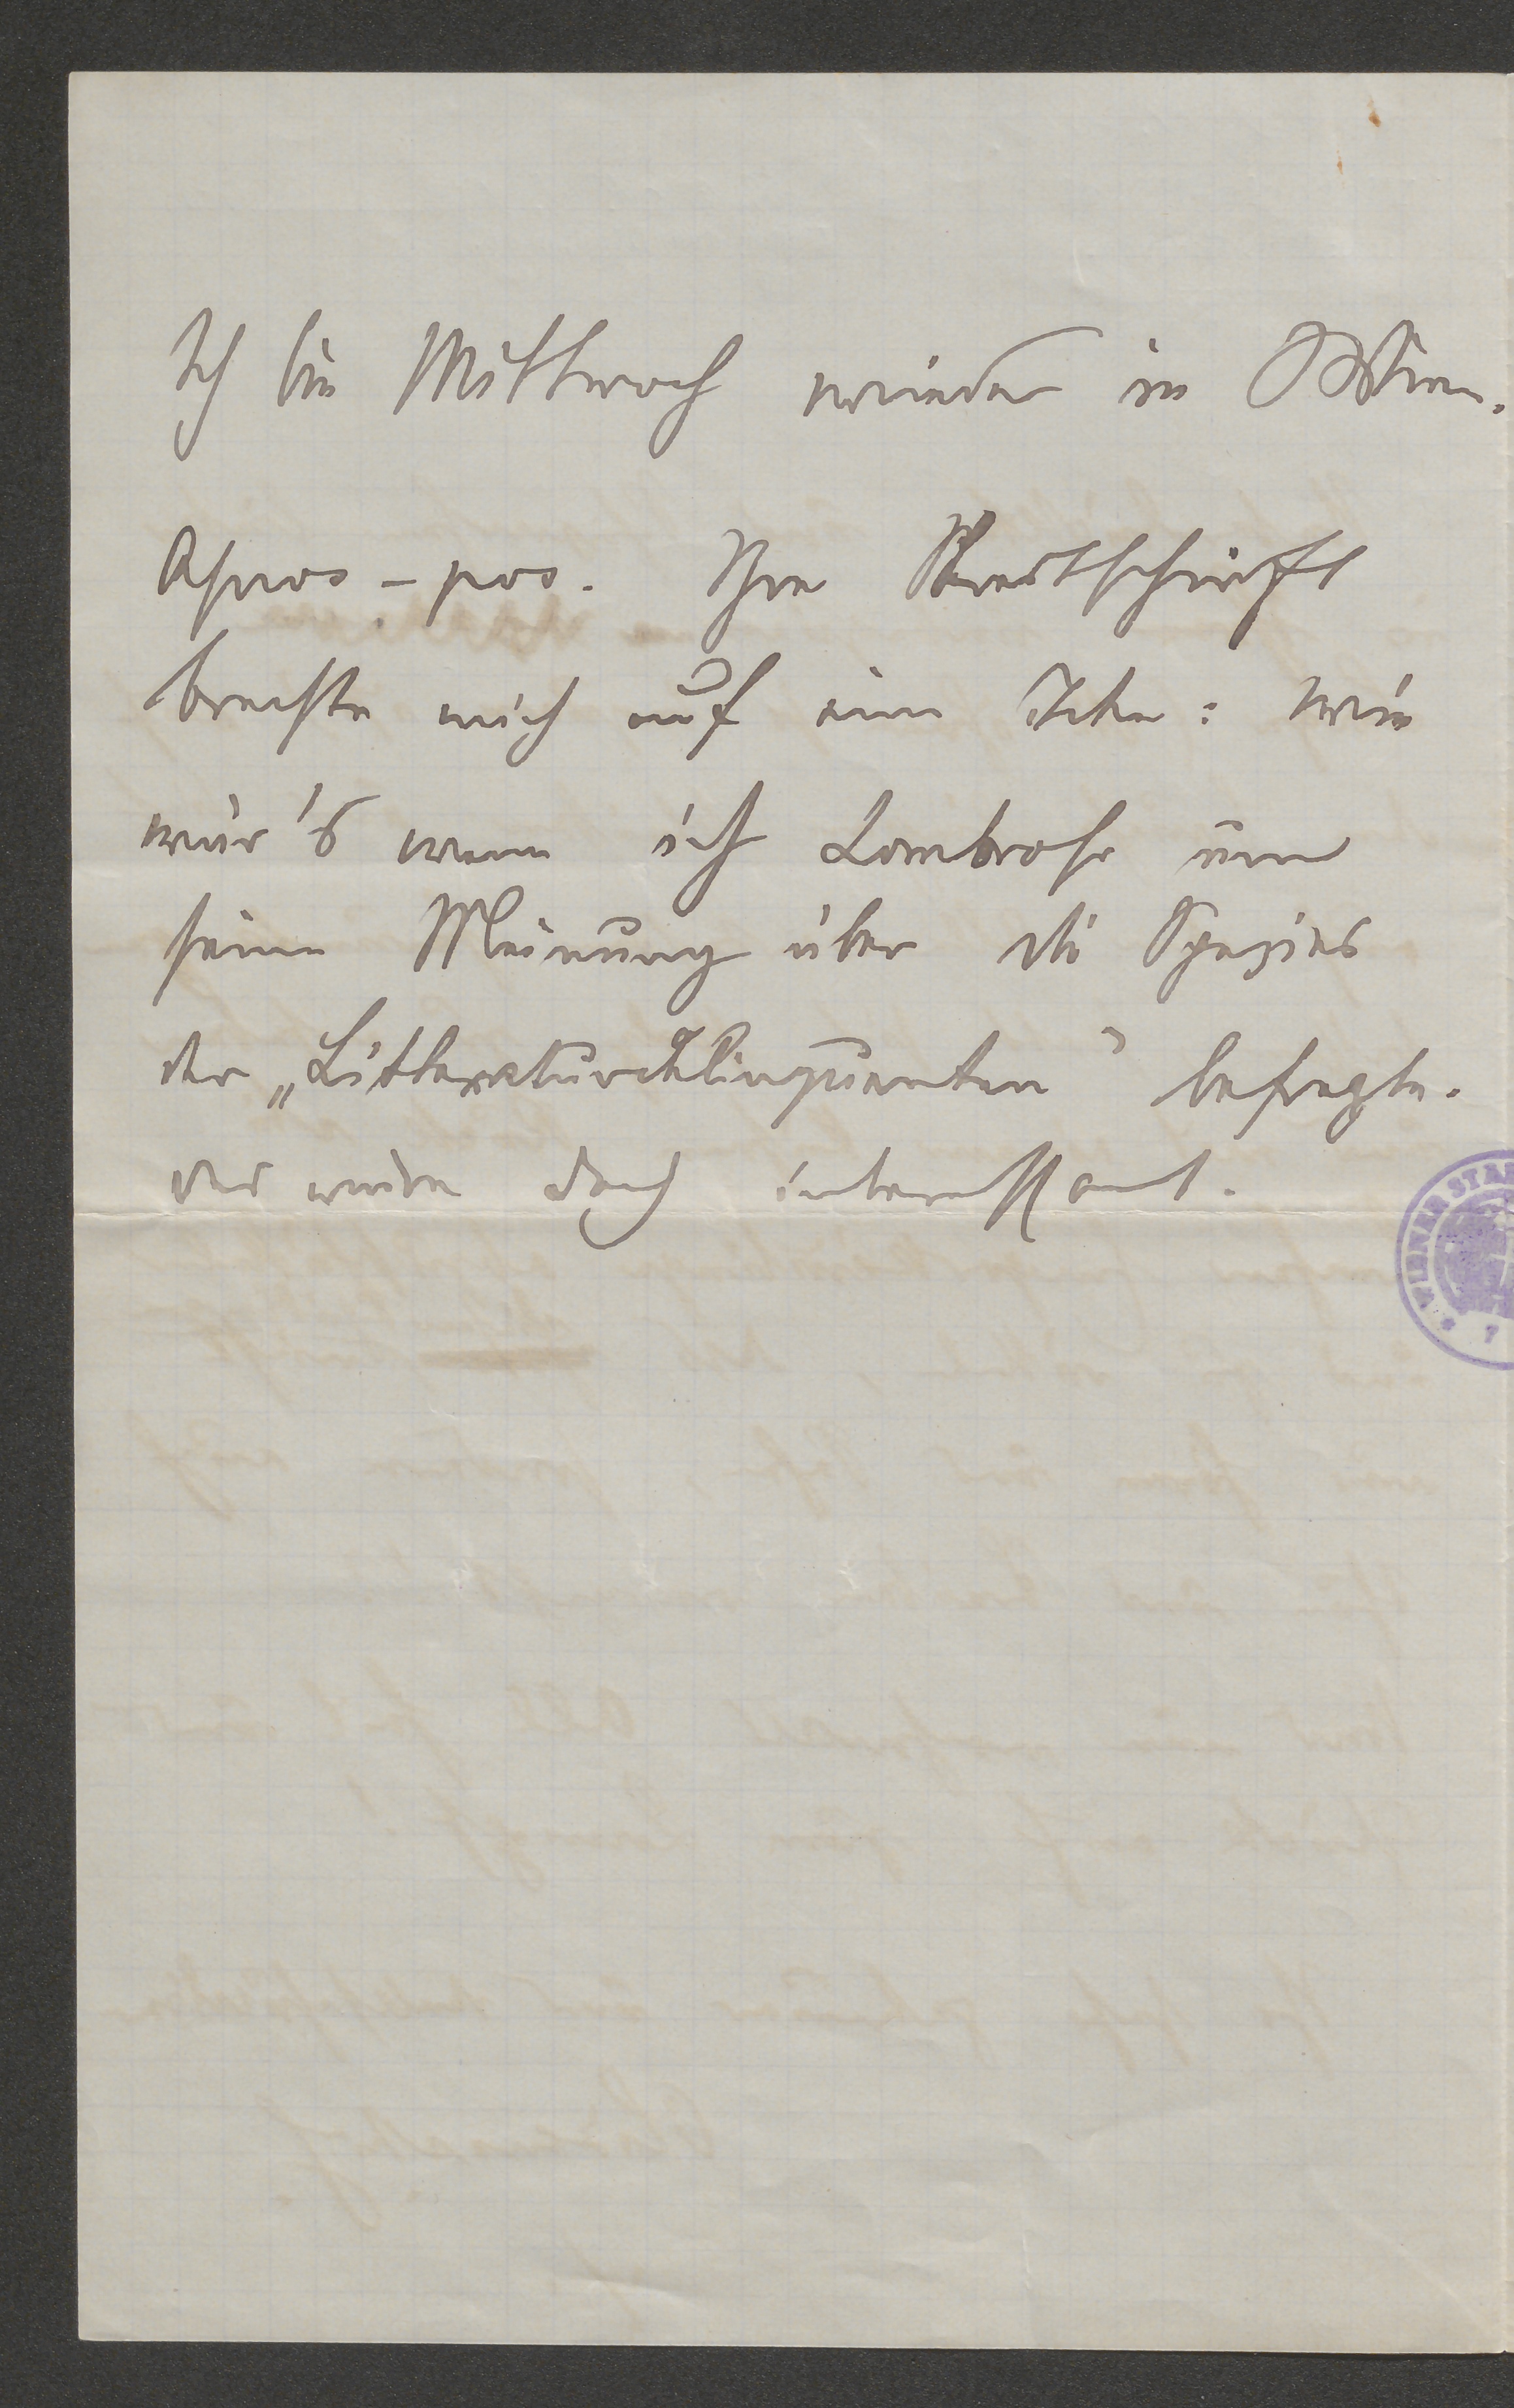 Ich bin Mittwoch wieder in Wien.
Apros-pos. Ihre Streitschrift
brachte mich auf eine Idee: wie
wär's wenn ich Lombroso um
seine Meinung über die Spezies
der „Litteraturdelinquenten" befragte.
das wäre doch interessant.
WIENER STA
7